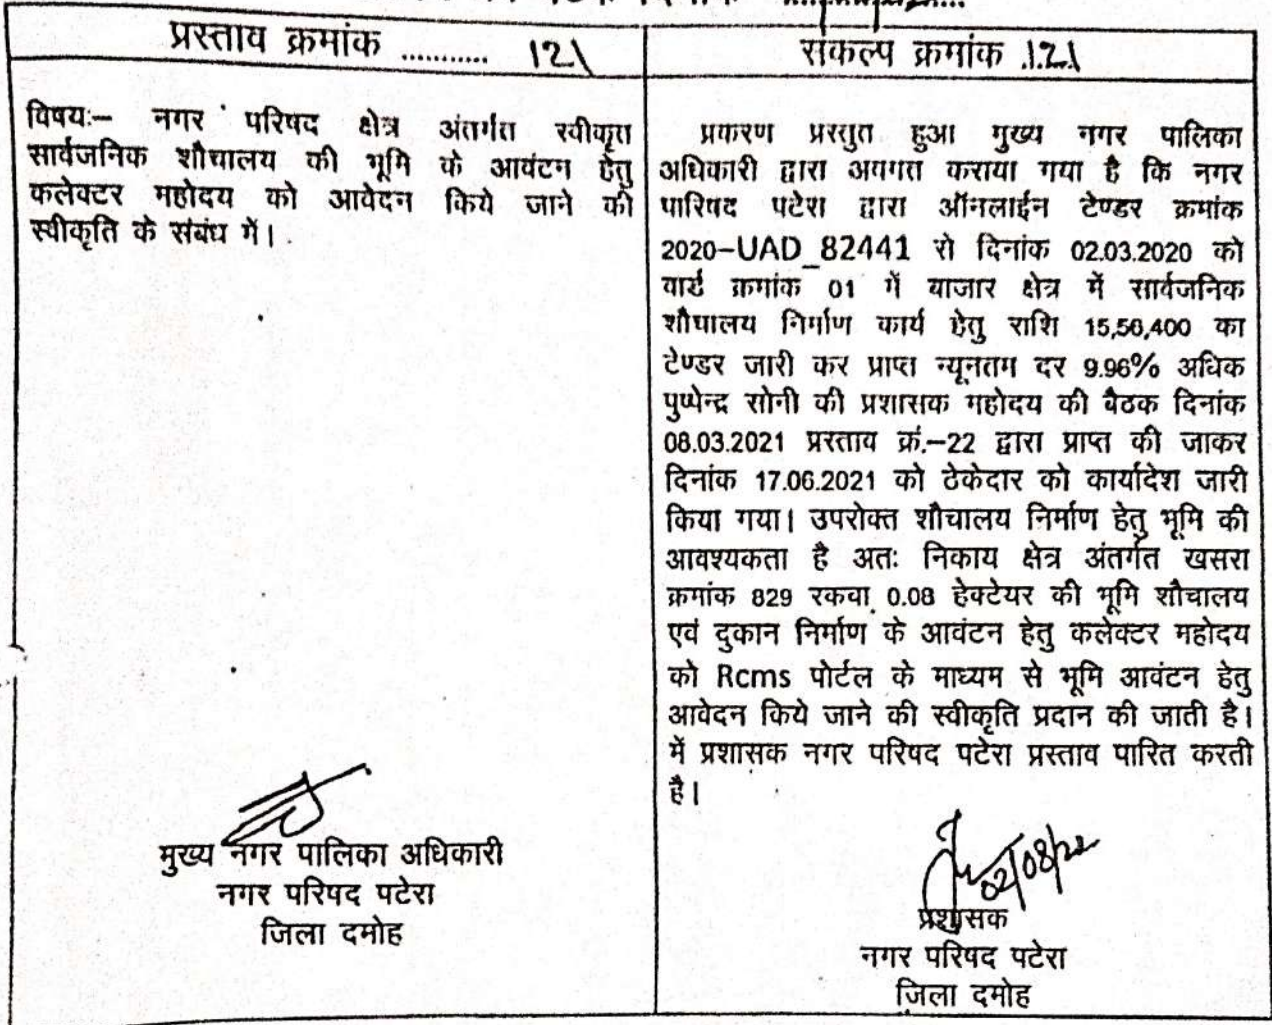 प्रस्ताव क्रमांक ........... 121
विषयः– नगर परिषद क्षेत्र अंतर्गत स्वीकृत
सार्वजनिक शौचालय की भूमि के आवंटन हेतु
कलेक्टर महोदय को आवेदन किये जाने की
स्वीकृति के संबंध में।
मुख्य नगर पालिका अधिकारी
नगर परिषद पटेरा
जिला दमोह
संकल्प क्रमांक .121
प्रकरण प्रस्तुत हुआ मुख्य नगर पालिका
अधिकारी द्वारा अवगत कराया गया है कि नगर
पारिषद पटेरा द्वारा ऑनलाईन टेण्डर क्रमांक
2020–UAD_82441 से दिनांक 02.03.2020 को
वार्ड क्रमांक 01 में बाजार क्षेत्र में सार्वजनिक
शौचालय निर्माण कार्य हेतु राशि 15,56,400 का
टेण्डर जारी कर प्राप्त न्यूनतम दर 9.96% अधिक
पुष्पेन्द्र सोनी की प्रशासक महोदय की बैठक दिनांक
08.03.2021 प्रस्ताव क्रं.–22 द्वारा प्राप्त की जाकर
दिनांक 17.06.2021 को ठेकेदार को कार्यादेश जारी
किया गया। उपरोक्त शौचालय निर्माण हेतु भूमि की
आवश्यकता है अतः निकाय क्षेत्र अंतर्गत खसरा
क्रमांक 829 रकवा 0.08 हेक्टेयर की भूमि शौचालय
एवं दुकान निर्माण के आवंटन हेतु कलेक्टर महोदय
को Rcms पोर्टल के माध्यम से भूमि आवंटन हेतु
आवेदन किये जाने की स्वीकृति प्रदान की जाती है।
में प्रशासक नगर परिषद पटेरा प्रस्ताव पारित करती
है।
02/08/22
प्रशासक
नगर परिषद पटेरा
जिला दमोह